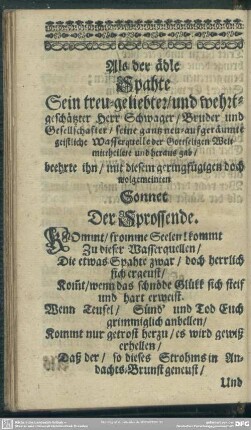 Als der ädle
Spahte
Sein treu-geliebter/und wehrt-
geschätzter Herr Schwager/ Bruder und
Gesellschafter/ seine gantz neu-aufgeräumte
geistliche Wasserquelle der Gottseligen Welt
mittheilete und heraus gab/
beehrte ihn/ mit diesem geringfügigen doch
wolgemeinten
Sonnet
Der Sprossende.
KOmmt/ fromme Seelen! kommt
Zu dieser Wasserquellen/
Die etwas Spahte zwar/ doch herrlich
sich ergeust/
Kom̃t/ wenn das schnöde Glükk sich steif
und hart erweist.
Wenn Teufel/ Sünd' und Tod Euch
grimmiglich anbellen/
Kommt nur getrost herzu/ es wird gewiß
erhellen/
Daß der/ so dieses Strohms in An-
dachts-Brunst geneust/
Und